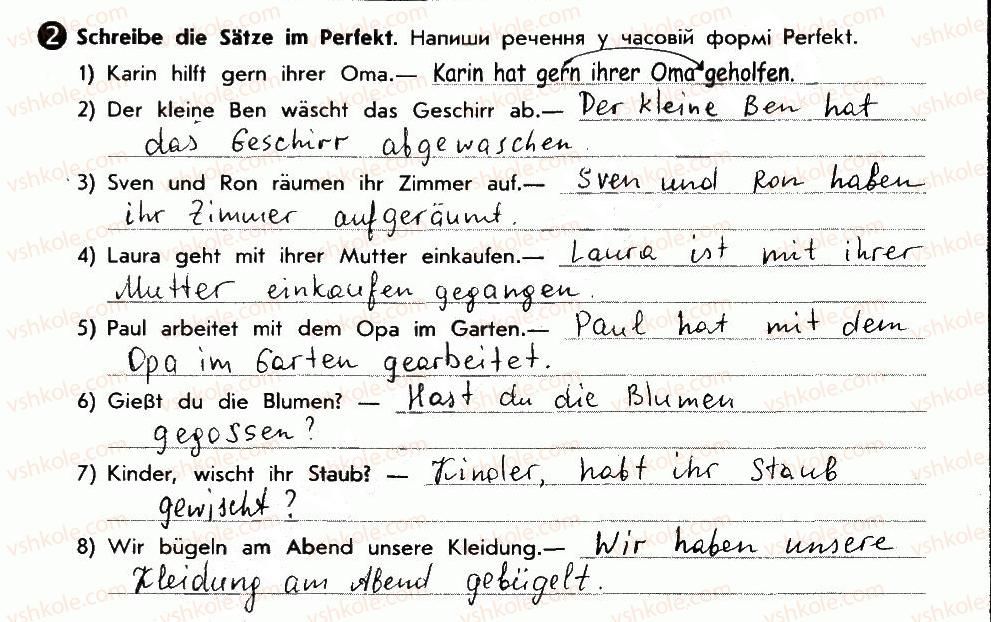 2 Schreibe die Sätze im Perfekt. Напиши речення у часовій формі Perfekt.
1) Karin hilft gern ihrer Oma.— Karin hat gern ihrer Oma geholfen.
2) Der kleine Ben wäscht das Geschirr ab.— Der kleine Ben hat
das Geschirr abgewaschen.
3) Sven und Ron räumen ihr Zimmer auf.— Sven und Ron haben
ihr Zimmer aufgeräumt.
4) Laura geht mit ihrer Mutter einkaufen.— Laura ist mit ihrer
Mutter einkaufen gegangen.
5) Paul arbeitet mit dem Opa im Garten.— Paul hat mit dem
Opa im Garten gearbeitet.
6) Gießt du die Blumen? — Hast du die Blumen
gegossen?
7) Kinder, wischt ihr Staub? — Kinder, habt ihr Staub
gewischt?
8) Wir bügeln am Abend unsere Kleidung.— Wir haben unsere
Kleidung am Abend gebügelt.
vshkole.com